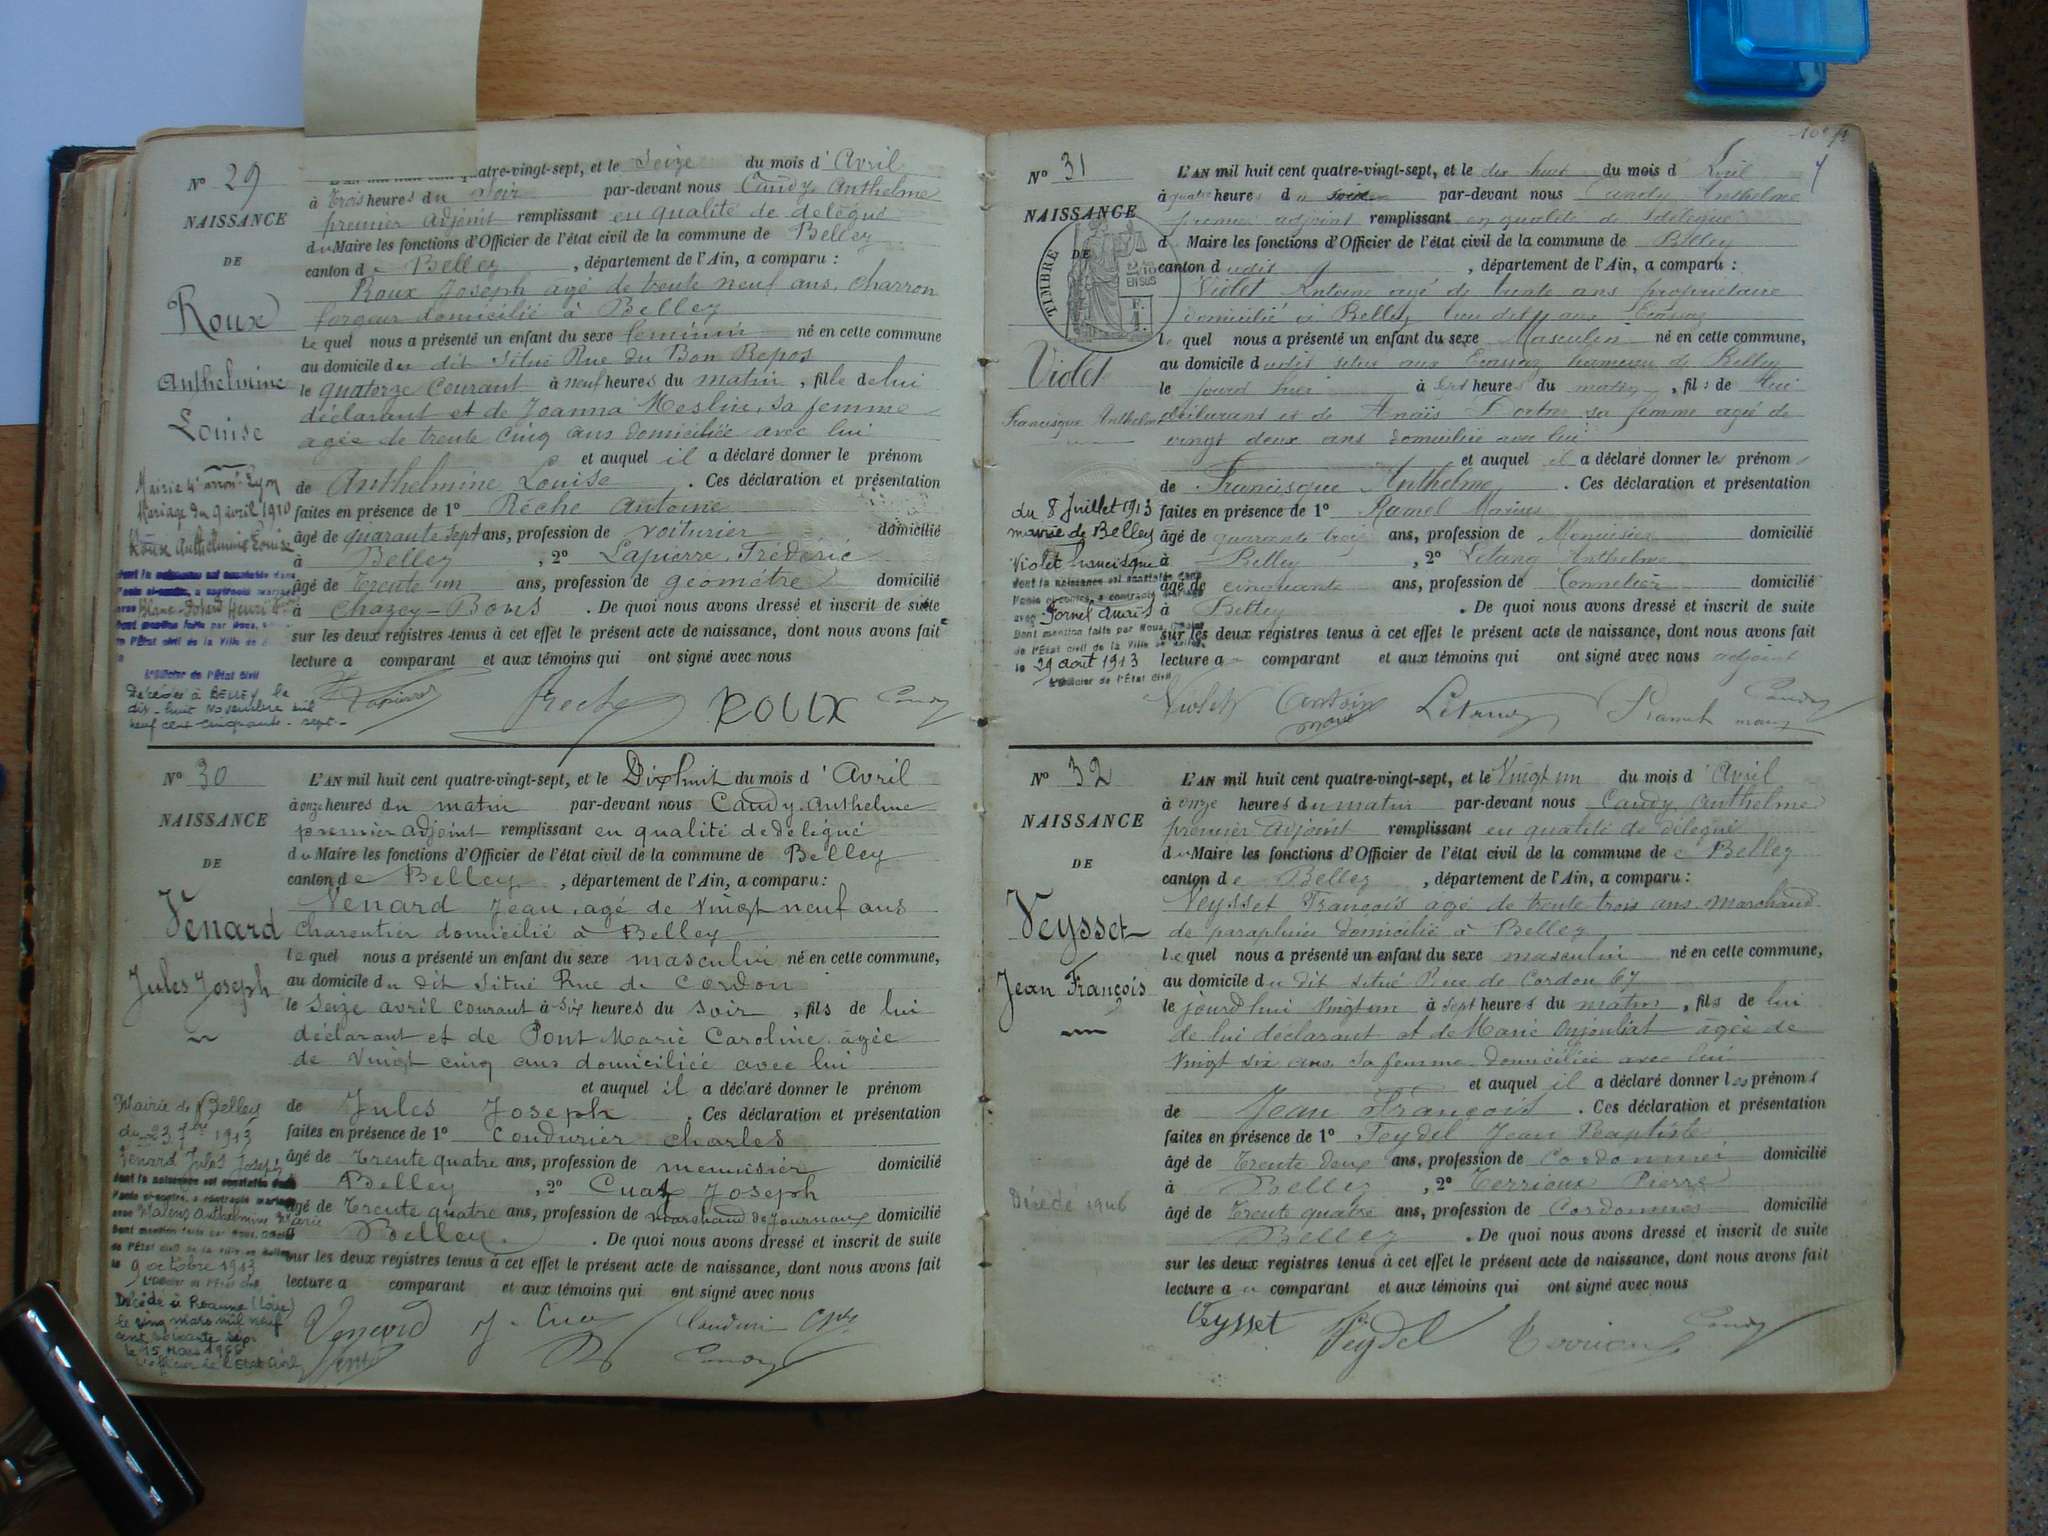 N° 29
NAISSANCE
DE
Roux
Anthelmine
Louise
quatre-vingt-sept, et le Seize du mois d'Avril
à trois heures du soir par-devant nous Candy Anthelme
premier adjoint remplissant en qualité de délégué
du Maire les fonctions d'Officier de l'état civil de la commune de Belley
canton de Belley, département de l'Ain, a comparu :
Roux Joseph agé de trente neuf ans, charron
forgeur domicilié à Belley
le quel nous a présenté un enfant du sexe feminin né en cette commune,
au domicile du dit situé Rue du Bon Repos
le quatorze Courant à neuf heures du matin, fille de lui
déclarant et de Joanna Meslin, sa femme
agée de trente cinq ans domiciliée avec lui
et auquel il a déclaré donner le prénom
de Anthelmine Louise. Ces déclaration et présentation
faites en présence de 1° Rèche Antoine
âgé de quarante sept ans, profession de voiturier domicilié
à Belley, 2° Lapierre, Fréderic
âgé de trente un ans, profession de géomètre domicilié
à Chazey-Bons. De quoi nous avons dressé et inscrit de suite
sur les deux registres tenus à cet effet le présent acte de naissance, dont nous avons fait
lecture a comparant et aux témoins qui ont signé avec nous
Mairie 4e arron. Lyon
Mariage du 9 avril 1910
Roux Anthelmine Louise
dont la naissance est constatée dans
l'acte ci-contre, a contracté mariage
avec
Dont mention faite par Nous,
de l'État civil de la Ville de
L'Officier de l'État Civil
Décédée à BELLEY, le
dix-huit Novembre mil
neuf cent cinquante-sept-
Lapierre Reche ROUX Candy
N° 30
NAISSANCE
DE
Venard
Jules Joseph
L'AN mil huit cent quatre-vingt-sept, et le Dix huit du mois d'Avril
à onze heures du matin par-devant nous Candy Anthelme
premier adjoint remplissant en qualité de délégué
du Maire les fonctions d'Officier de l'état civil de la commune de Belley
canton de Belley, département de l'Ain, a comparu :
Venard Jean, agé de vingt neuf ans
Charentier domicilié à Belley
le quel nous a présenté un enfant du sexe masculin né en cette commune,
au domicile du dit situé Rue de Cordon
le Seize avril courant à Six heures du soir, fils de lui
déclarant et de Pont Marie Caroline agée
de vingt cinq ans domiciliée avec lui
et auquel il a déclaré donner le prénom
de Jules Joseph. Ces déclaration et présentation
faites en présence de 1° Coudurier Charles
âgé de Trente quatre ans, profession de menuisier domicilié
Belley, 2° Cuaz Joseph
âgé de Trente quatre ans, profession de Marchand de Journaux domicilié
Belley. De quoi nous avons dressé et inscrit de suite
sur les deux registres tenus à cet effet le présent acte de naissance, dont nous avons fait
lecture a comparant et aux témoins qui ont signé avec nous
Mairie de Belley
du 23 7bre 1913
Venard Jules Joseph
dont la naissance est constatée dans
l'acte ci-contre, a contracté mariage
avec Anthelmine Marie
Dont mention faite par Nous, Officier
de l'État civil de la Ville de Belley
le 9 octobre 1913
L'Officier de l'État civil
Décédé à Roanne (Loire)
le cinq mars mil neuf
cent soixante six
le 15 Mars 1966
L'officier de l'Etat Civil
Venard J. Cuaz Couduri Ch Candy
N° 31
NAISSANCE
DE
TIMBRE
EN SUS
Violet
Francisque Anthelme
L'AN mil huit cent quatre-vingt-sept, et le dix huit du mois d'Avril
à quatre heures du soir par-devant nous Candy Anthelme
premier adjoint remplissant en qualité de délégué
du Maire les fonctions d'Officier de l'état civil de la commune de Belley
canton dudit, département de l'Ain, a comparu :
Violet Antoine agé de trente ans propriétaire
domicilié à Belley
le quel nous a présenté un enfant du sexe Masculin né en cette commune,
au domicile dudit situé aux hameau de Belley
le jourd'hui à sept heures du matin, fils de lui
déclarant et de Anaïs sa femme agée de
vingt deux ans domiciliée avec lui
et auquel il a déclaré donner les prénoms
de Francisque Anthelme. Ces déclaration et présentation
faites en présence de 1° Ramel Marius
âgé de quarante trois ans, profession de Menuisier domicilié
à Belley, 2° Létang Anthelme
âgé de cinquante ans, profession de Tonnelier domicilié
à Belley. De quoi nous avons dressé et inscrit de suite
sur les deux registres tenus à cet effet le présent acte de naissance, dont nous avons fait
lecture au comparant et aux témoins qui ont signé avec nous adjoint
du 8 Juillet 1913
mairie de Belley
Violet francisque
dont la naissance est constatée dans
l'acte ci-contre, a contracté
avec
Dont mention faite par Nous, Officier
de l'État civil de la Ville de Belley
le 29 août 1913
L'Officier de l'État Civil
Violet Antoin Letang Ramel Candy
N° 32
NAISSANCE
DE
Veysset
Jean François
L'AN mil huit cent quatre-vingt-sept, et le Vingt un du mois d'Avril
à onze heures du matin par-devant nous Candy Anthelme
premier adjoint remplissant en qualité de délégué
du Maire les fonctions d'Officier de l'état civil de la commune de Belley
canton de Belley, département de l'Ain, a comparu :
Veysset François agé de trente trois ans, marchand
de parapluies domicilié à Belley
le quel nous a présenté un enfant du sexe masculin né en cette commune,
au domicile du dit situé Rue de Cordon 67
le jourd'hui vingt un à sept heures du matin, fils de lui
de lui déclarant et de Marie agée de
vingt six ans, sa femme domiciliée avec lui
et auquel il a déclaré donner les prénoms
de Jean François. Ces déclaration et présentation
faites en présence de 1° Feydel Jean Baptiste
âgé de Trente deux ans, profession de Cordonnier domicilié
à Belley, 2° Terrioux Pierre
âgé de Trente quatre ans, profession de Cordonnier domicilié
Belley. De quoi nous avons dressé et inscrit de suite
sur les deux registres tenus à cet effet le présent acte de naissance, dont nous avons fait
lecture au comparant et aux témoins qui ont signé avec nous
Décédé 1946
Veysset Feydel Terrioux Candy